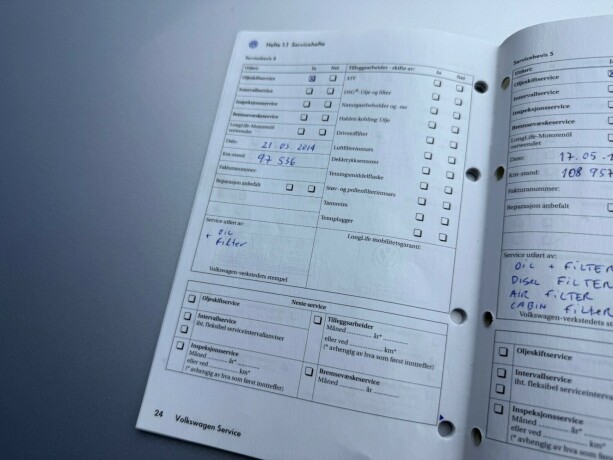 Hefte 1.1 Servicehefte
Servicebevis 4
Utført: Ja Nei
Oljeskiftservice
Intervallservice
Inspeksjonsservice
Bremsevæskeservice
LongLife-Motorenöl
verwendet
Dato: 21.03.2014
Km-stand: 97 536
Fakturanummer:
Reparasjon anbefalt
Service utført av:
OIL
+ Filter
Volkswagen-verkstedets stempel
Tilleggsarbeider - skifte av: Ja Nei
ATF
DSG®- Olje og filter
Haldex-kobling: Olje
Drivstoffilter
Luftfilterinnsats
Dekktrykksensorer
Tetningsmiddelflaske
Støv- og pollenfilterinnsats
Tannreim
Tennplugger
LongLife mobilitetsgaranti:
Neste service
Oljeskiftservice
Intervallservice
iht. fleksibel serviceintervallanviser
Inspeksjonsservice
Måned .......... år*
eller ved .......... km*
(* avhengig av hva som først inntreffer)
Tilleggsarbeider
Måned .......... år*
eller ved .......... km*
(* avhengig av hva som først inntreffer)
Bremsevæskeservice
Måned .......... år
24 Volkswagen Service
Servicebevis 5
Utført:
Oljeskiftservice
Intervallservice
Inspeksjonsservice
Bremsevæskeservice
LongLife-Motorenöl
verwendet
Dato: 17.05.
Km-stand: 108 957
Fakturanummer:
Reparasjon anbefalt
Service utført av:
OIL + FILTER
DISEL FILTER
AIR FILTER
CABIN FILTER
Volkswagen-verkstedets
Oljeskiftservice
Intervallservice
iht. fleksibel serviceinterval
Inspeksjonsservice
Måned .......... år*
eller ved .......... km*
(* avhengig av hva som først